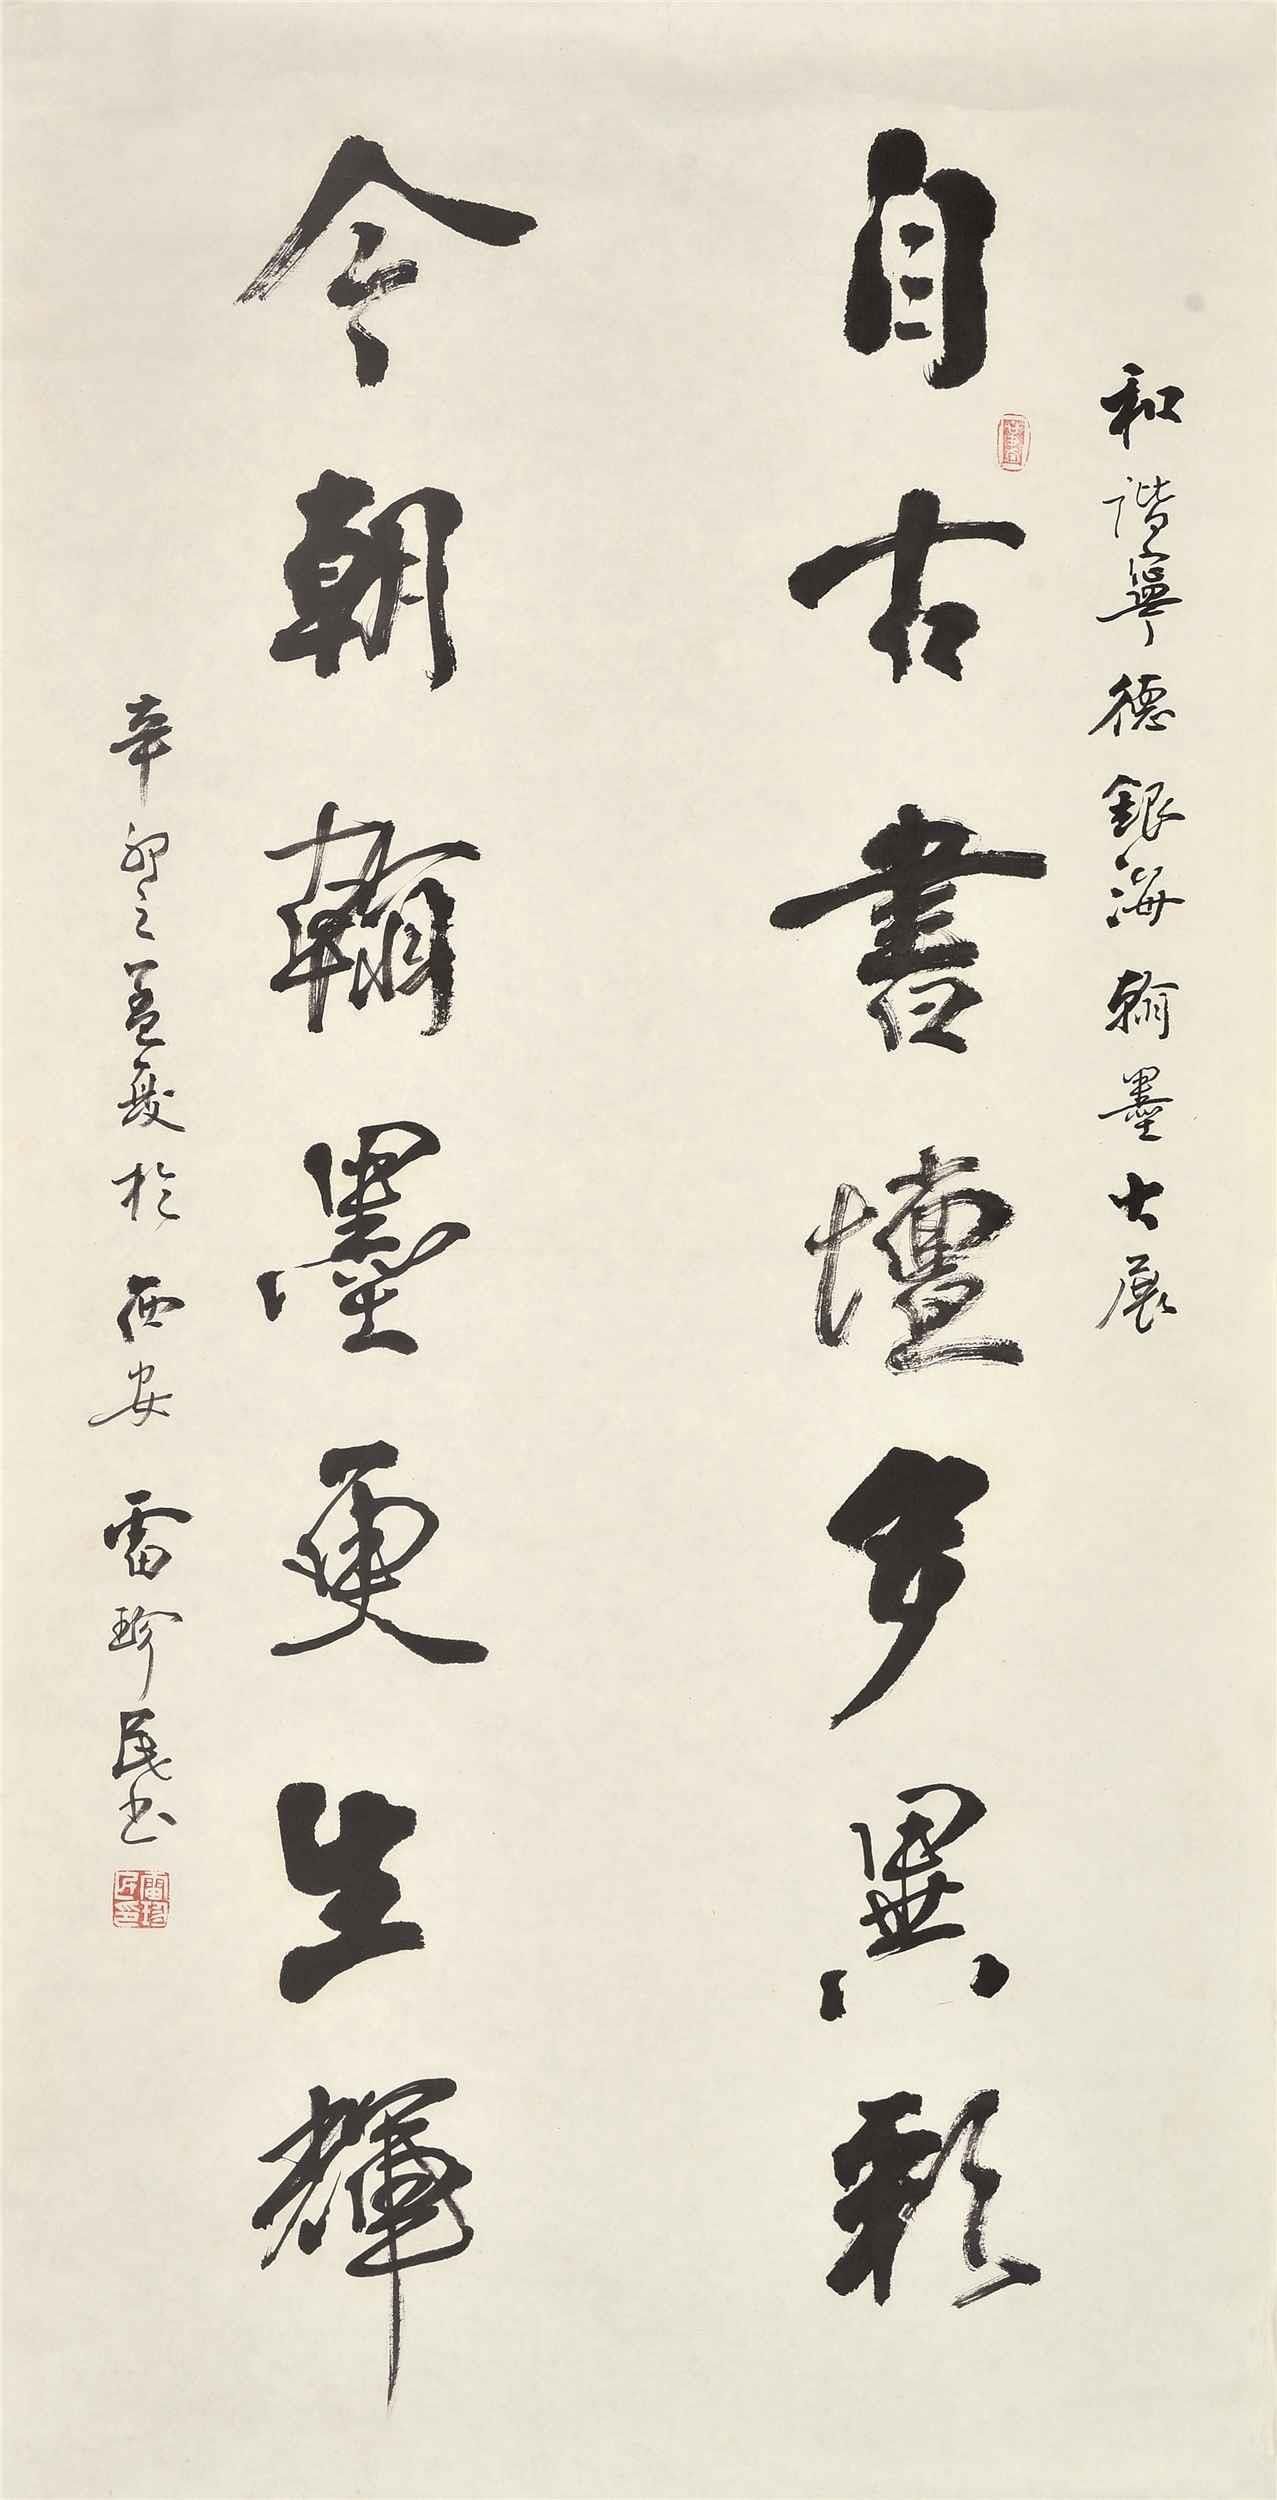 和諧寧德銀海翰墨大展
自古書壇多異彩
今朝翰墨更生輝
辛卯之孟夏於西安雷珍民书
雷珍民印